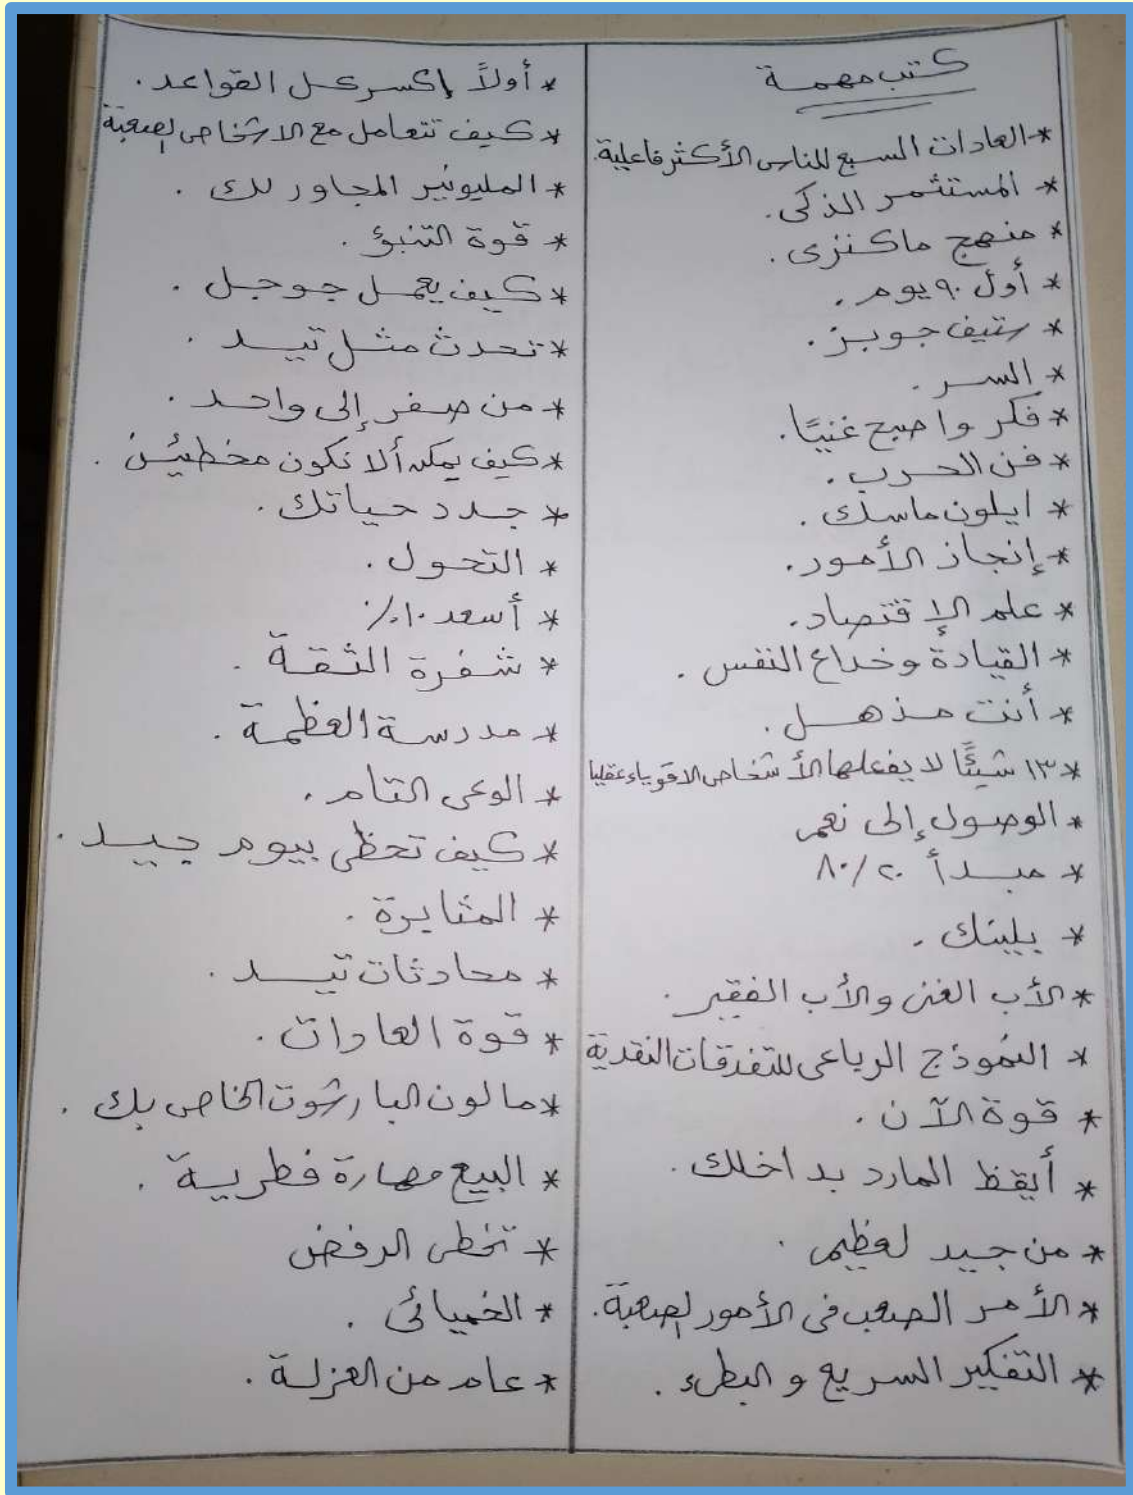 كتب مهمة
* العادات السبع للناس الأكثر فاعلية.
* المستثمر الذكى.
* منهج ماكنزى.
* أول ٩٠ يوم.
* ستيف جوبز.
* السر.
* فكر واصبح غنيًا.
* فن الحرب.
* ايلون ماسك.
* إنجاز الأمور.
* علم الإقتصاد.
* القيادة وخداع النفس.
* أنت مذهل.
* ١٣ شيئًا لا يفعلها الأشخاص الاقوياء عقليا
* الوصول إلى نعم
* مبدأ ٨٠/٢٠
* بلينك.
* الأب الغنى والأب الفقير.
* النموذج الرباعى للتدفقات النقدية
* قوة الآن.
* أيقظ المارد بداخلك.
* من جيد لعظيم.
* الأمر الصعب فى الأمور الصعبة.
* التفكير السريع والبطىء.
* أولاً إكسر كل القواعد.
* كيف تتعامل مع الاشخاص الصعبة
* المليونير المجاور لك.
* قوة التنبؤ.
* كيف يعمل جوجل.
* تحدث مثل تيد.
* من صفر إلى واحد.
* كيف يمكن ألا نكون مخطئين.
* جدد حياتك.
* التحول.
* أسعد ١٠٪
* شفرة الثقة.
* مدرسة العظمة.
* الوعى التام.
* كيف تحظى بيوم جيد.
* المثابرة.
* محادثات تيد.
* قوة العادات.
* ما لون البارشوت الخاص بك.
* البيع مهارة فطرية.
* تخطى الرفض
* الخميائى.
* عام من العزلة.